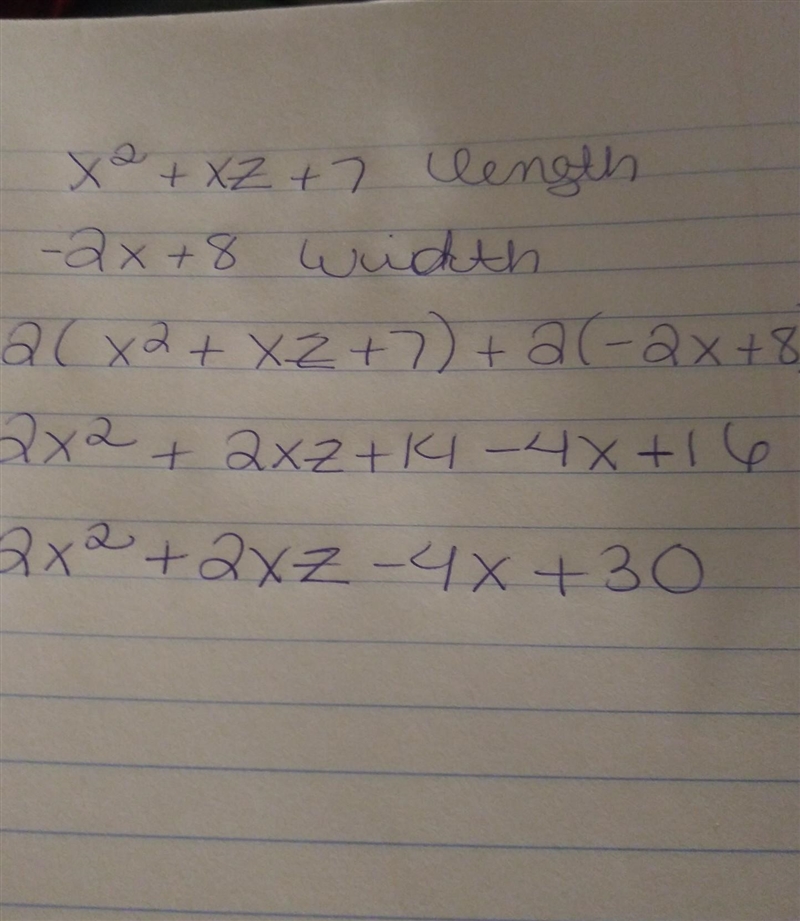 x² + xz + 7 length
-2x + 8 width
2(x² + xz + 7) + 2(-2x + 8
2x² + 2xz + 14 - 4x + 16
2x² + 2xz - 4x + 30